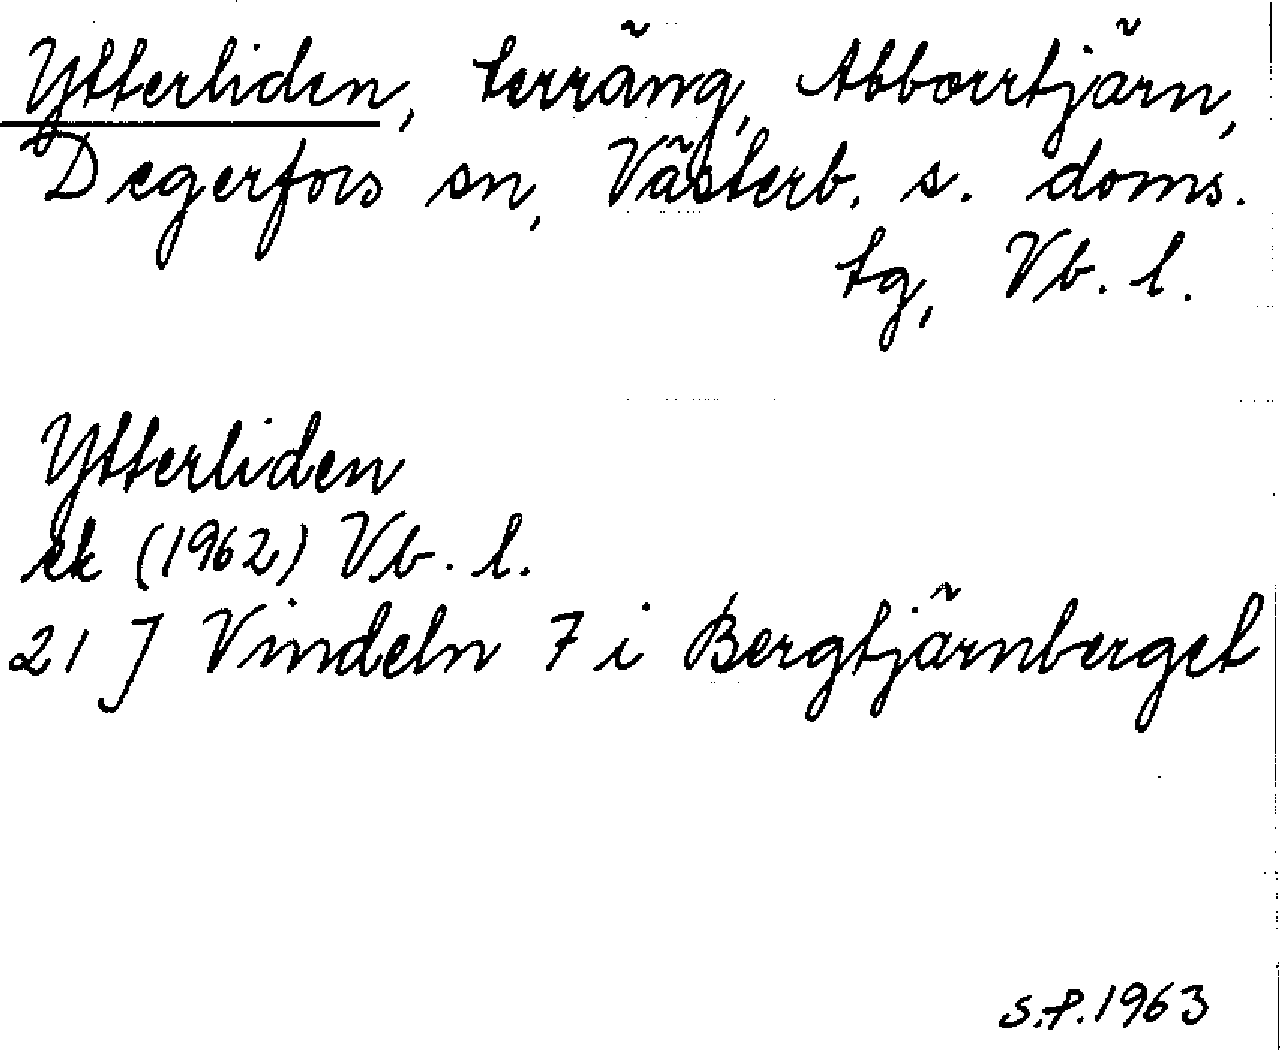 Ytterliden, terräng, Abborrtjärn,
Degerfors sn, Västerb. s. doms.
tg, Vb. l.
Ytterliden
ek (1962) Vb. l.
21 J Vindeln 7 i Bergtjärnberget
S.P. 1963